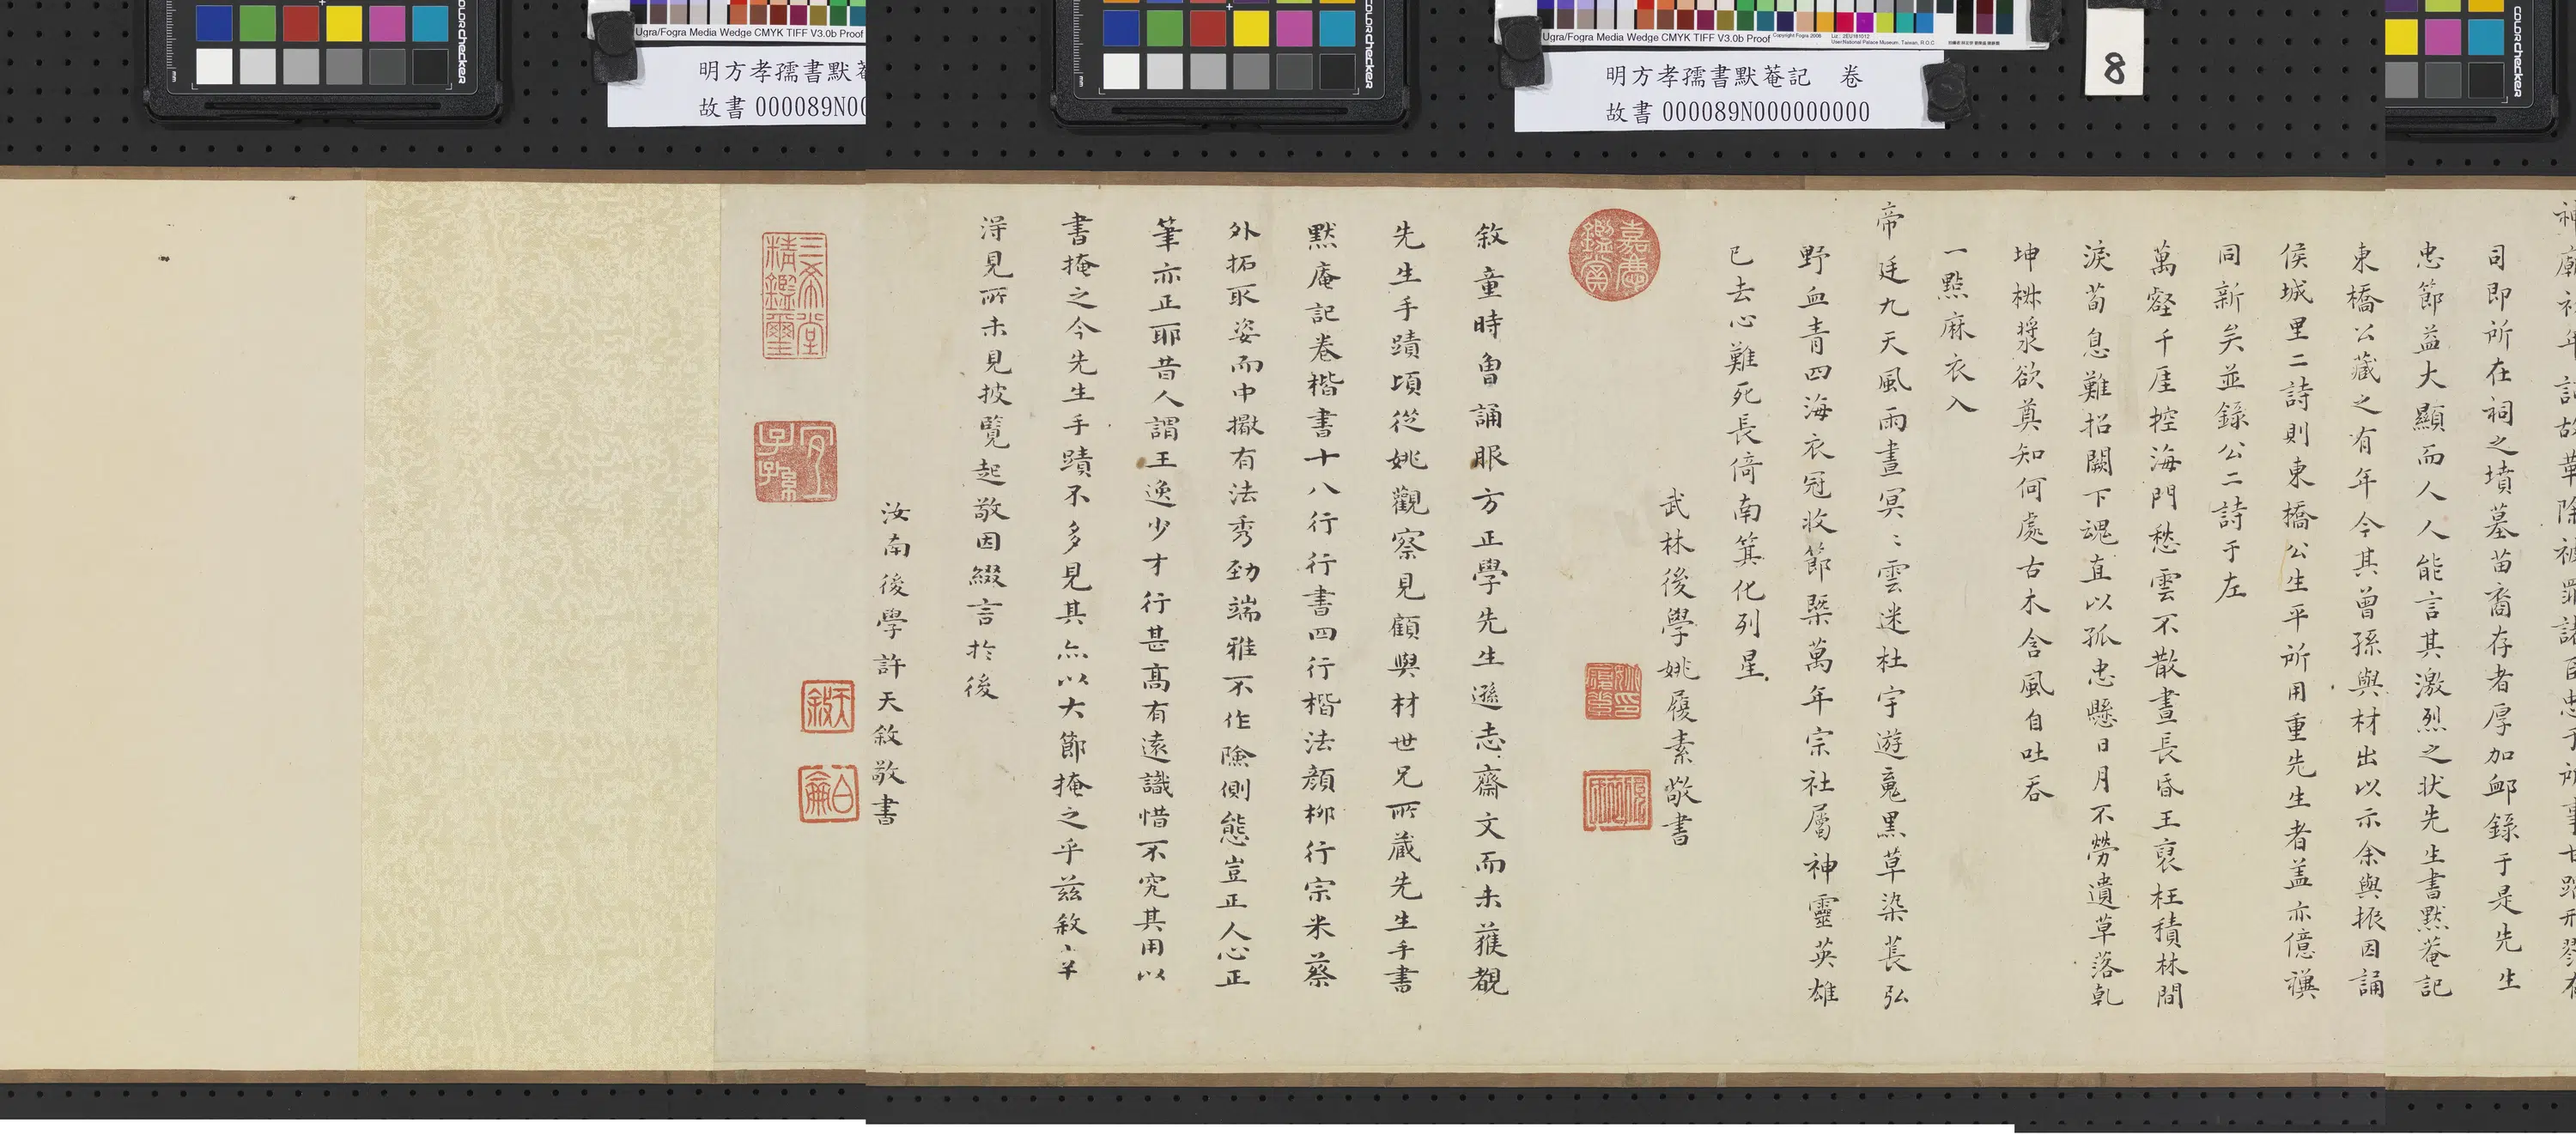 COLORchecker
Ugra/Fogra Media Wedge CMYK TIFF V3.0b Proof
明方孝孺書默菴
故書000089N00
COLORchecker
Ugra/Fogra Media Wedge CMYK TIFF V3.0b Proof
User/National Palace Museum, Taiwan, R.O.C
明方孝孺書默菴記 卷
故書000089N000000000
8
COLORchecker
司即所在祠之墳墓苗裔存者厚加卹錄于是先生
忠節益大顯而人人能言其激烈之状先生書默菴記
東橋公藏之有年今其曾孫與材出以示余與振因誦
侯城里二詩則東橋公生平所用重先生者盖亦億禩
同新矣並錄公二詩于左
萬壑千厓控海門愁雲不散晝長昏王裒枉積林間
淚荀息難招闕下魂直以孤忠懸日月不勞遺草落乾
坤椒漿欲奠知何處古木含風自吐吞
一點麻衣入
帝廷九天風雨晝冥:雲迷杜宇遊䰟黒草染萇弘
野血青四海衣冠收節槩萬年宗社屬神靈英雄
已去心難死長倚南箕化列星
武林後學姚履素敬書
嘉慶鑑賞
敘童時曾誦眼方正學先生遜志齋文而未獲覩
先生手蹟頃從姚觀察見顧與材世兄所藏先生手書
默庵記卷楷書十八行行書四行楷法顔柳行宗米蔡
外拓取姿而中擫有法秀勁端雅不作險側態豈正人心正
筆亦正耶昔人謂王逸少才行甚髙有遠識惜不究其用以
書掩之今先生手蹟不多見其亦以大節掩之乎兹敘小子
淂見所未見披覽起敬因綴言於後
汝南後學許天敘敬書
三希堂精鑑璽
宜子孫
天敘